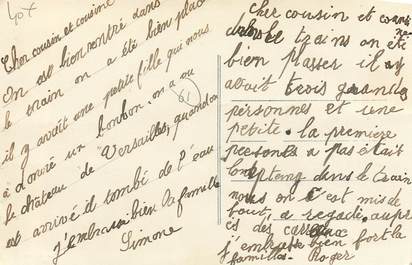 40x
Cher cousin et cousine
On est bien rentré dans
le train on a été bien placé
il y avait une petite fille qui nous
a donné un bonbon. on a vu
le château de Versailles, quand on
est arrivé il tombé de l'eau
j'embrasse bien la famille
Simone
61
Cher cousin et cousine
dans le trains on été
bien plasser il y
avait trois grandes
personnes et une
petite. la première
personne a pas était
lontemp dans le train
nous on c est mis de
bout, a regardé auprè
s des carreaux
j'embrasse bien fort la
famille. Roger